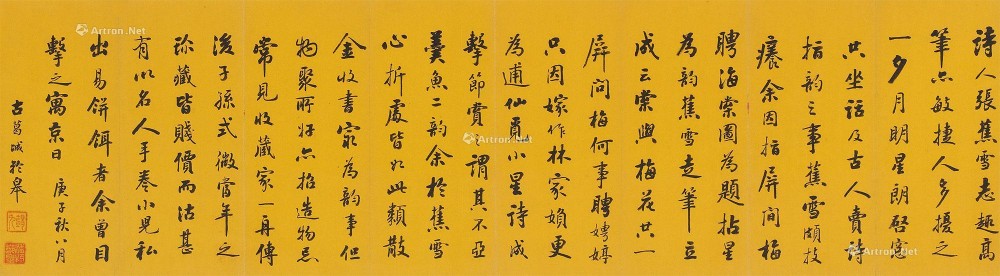 詩人張蕉雪志趣高
筆亦敏捷人多擾之
一夕月明星朗啓窓
只坐話及古人賣詩
指韵之事蕉雪頗技
癢余因指屏間梅
聘海棠圖為題拈星
為韵蕉雪走筆立
成云棠與梅花共一
屏問梅何事聘娉婷
只因嫁作林家婦更
為逋仙小星詩成
擊節賞謂其不亞
羹魚二韵余於蕉雪
心折處皆如此類散
金收書家為韵事但
物聚所好亦招造物忌
常見收藏家一再傳
後子孫式微當年之
珎藏皆賤價而沽甚
有以名人手卷小兒私
出易餅餌者余曾目
擊之寓京日 庚子秋八月
古葛城於皋
Artron.Net
Artron.Net
Artron.Net
Artron.Net
Artron.Net